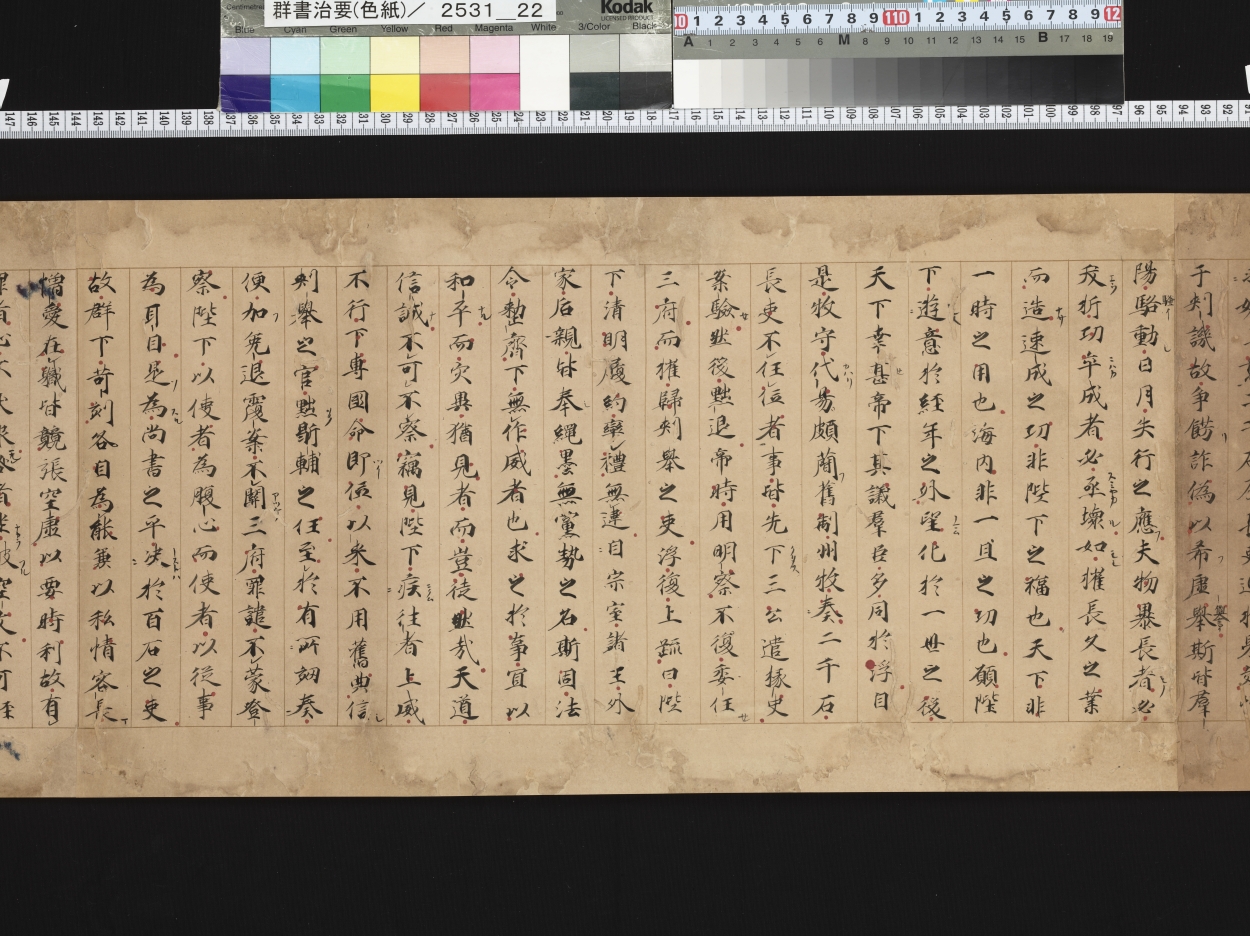 群書治要(色紙)／ 2531__22
Kodak
LICENSED PRODUCT
Blue Cyan Green Yellow Red Magenta White 3/Color Black
于刻譏故爭餝詐偽以希虛譽斯皆群
陽騷動日月失行之應夫物暴長者必
夭折功卒成者必亟壞如摧長久之業
而造速成之功非陛下之福也天下非
一時之用也海内非一旦之功也願陛
下遊意於經年之外望化於一世之後
天下幸甚帝下其議羣臣多同於浮自
是牧守代易頗蕳舊制州牧奏二千石
長吏不任位者事皆先下三公遣掾史
案驗然後黜退帝時用明察不復委任
三府而權歸刻舉之吏浮復上疏曰陛
下清明履約率禮無違自宗室諸王外
家后親皆奉繩墨無黨勢之名斯固法
令整齊下無作威者也求之於事宜以
和平而灾異猶見者而豈徒然哉天道
信誠不可不察竊見陛下疾往者上威
不行下專國命即位以来不用舊典信
刺舉之官黜鼎輔之任至於有所劾奏
便加免退覆案不關三府罪譴不蒙澄
察陛下以使者為腹心而使者以從事
為耳目是為尚書之平决於百石之吏
故群下苛刻各自為能兼以私情容長
憎愛在軄皆競張空虛以要時利故有